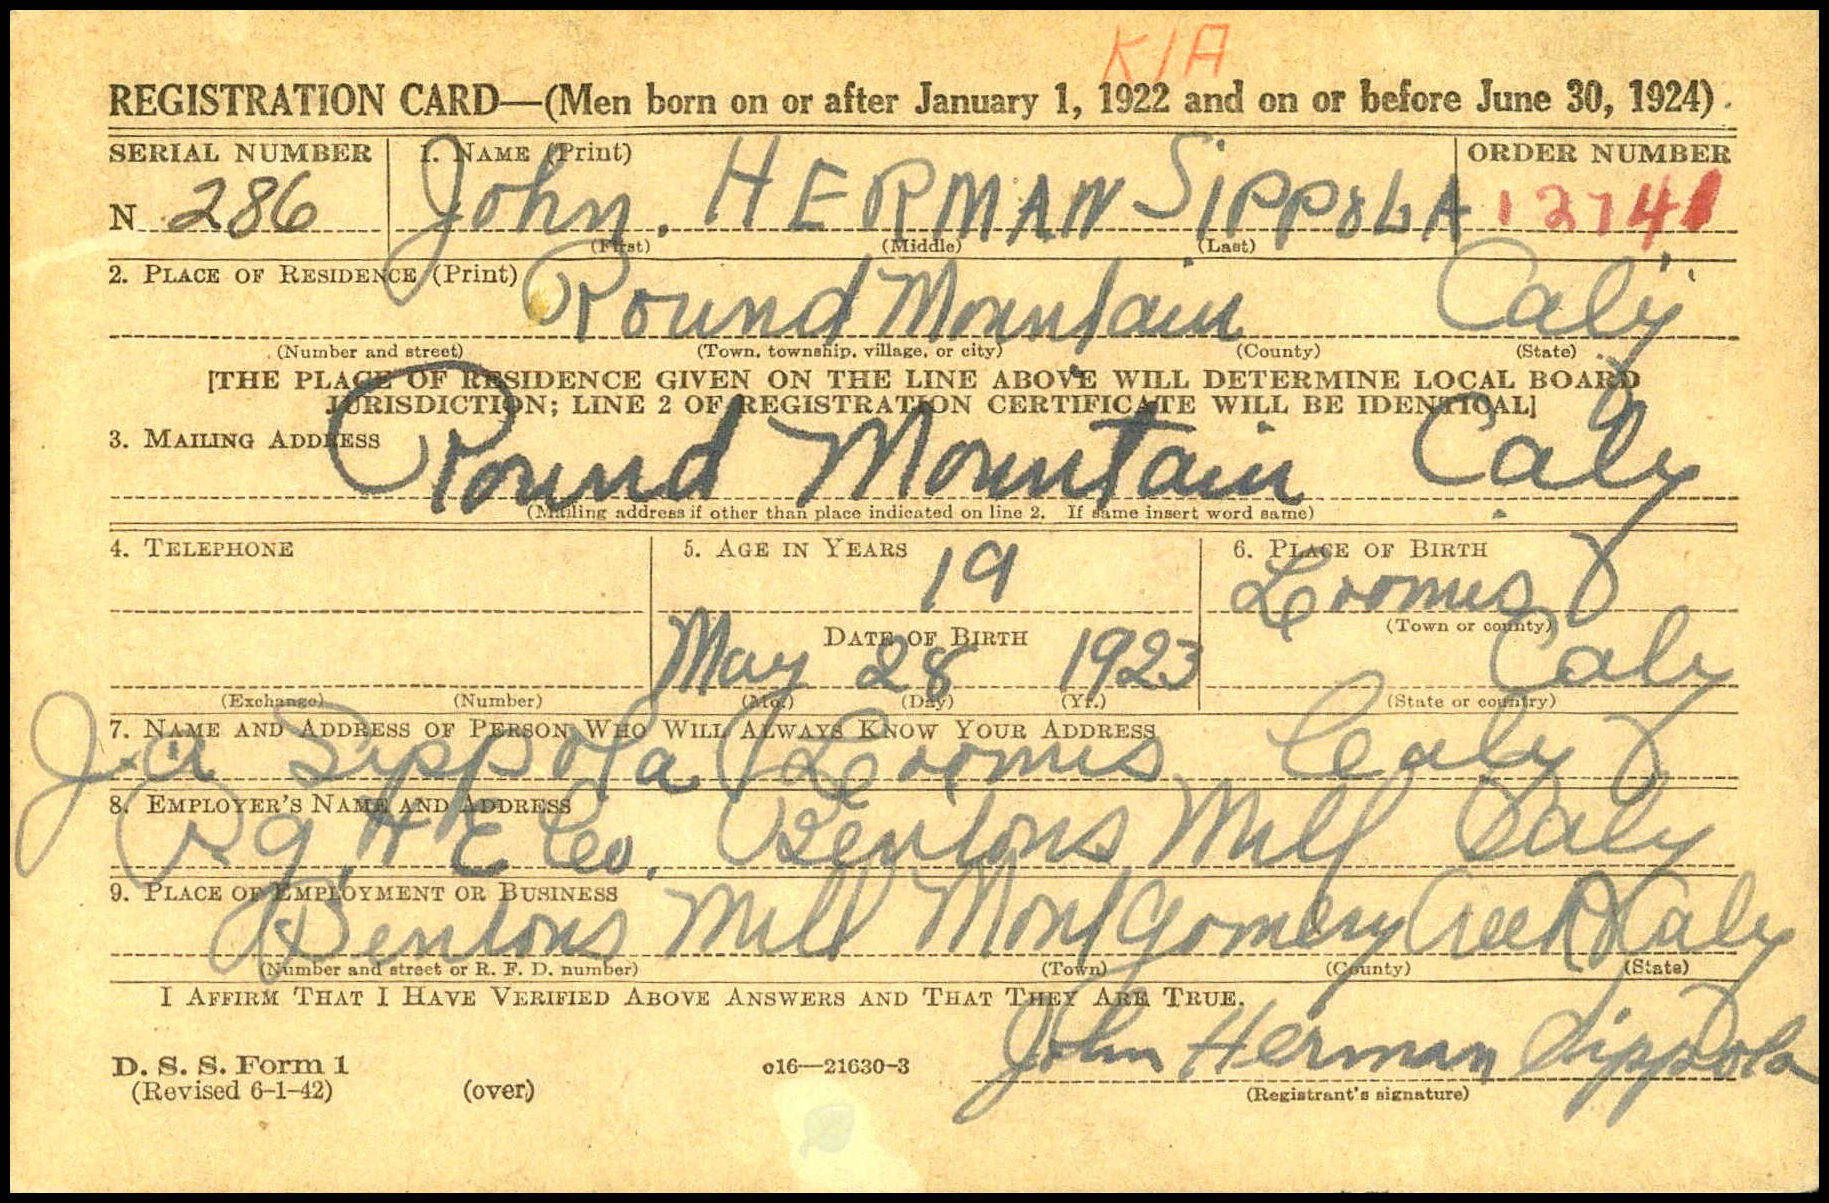 KIA
REGISTRATION CARD—(Men born on or after January 1, 1922 and on or before June 30, 1924)
SERIAL NUMBER 1. NAME (Print) ORDER NUMBER
N 286 John. HERMAN SIPPOLA 12741
(First) (Middle) (Last)
2. PLACE OF RESIDENCE (Print)
Round Mountain Calif
(Number and street) (Town, township, village, or city) (County) (State)
[THE PLACE OF RESIDENCE GIVEN ON THE LINE ABOVE WILL DETERMINE LOCAL BOARD
JURISDICTION; LINE 2 OF REGISTRATION CERTIFICATE WILL BE IDENTICAL]
3. MAILING ADDRESS
Round Mountain Calif
(Mailing address if other than place indicated on line 2. If same insert word same)
4. TELEPHONE 5. AGE IN YEARS 6. PLACE OF BIRTH
19 Loomis
DATE OF BIRTH (Town or county)
May 28 1923 Calif
(Exchange) (Number) (Mo.) (Day) (Yr.) (State or country)
7. NAME AND ADDRESS OF PERSON WHO WILL ALWAYS KNOW YOUR ADDRESS
J. A Sippola Loomis Calif
8. EMPLOYER'S NAME AND ADDRESS
P g, & E Co. Bentons Mill Calif
9. PLACE OF EMPLOYMENT OR BUSINESS
Bentons Mill Montgomery Creek Calif
(Number and street or R. F. D. number) (Town) (County) (State)
I AFFIRM THAT I HAVE VERIFIED ABOVE ANSWERS AND THAT THEY ARE TRUE.
John Herman Sippola
D. S. S. Form 1 c16—21630-3
(Revised 6-1-42) (over) (Registrant's signature)